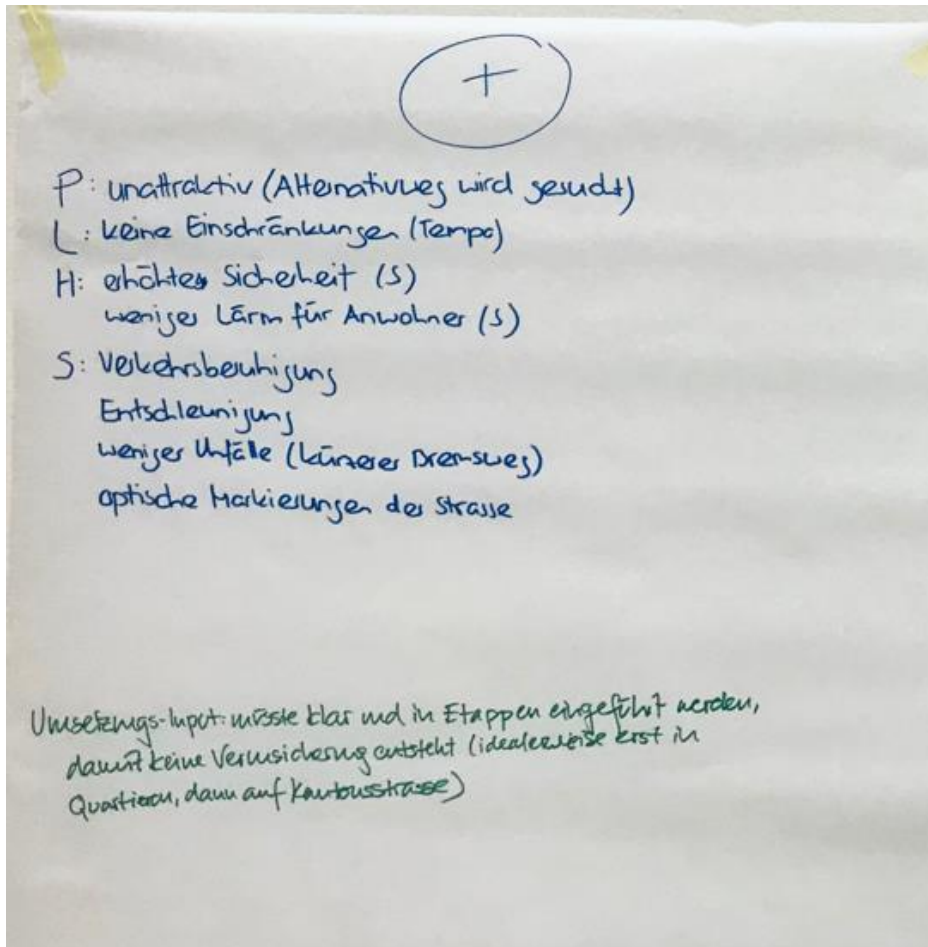 +
P: unattraktiv (Alternativweg wird gesucht)
L: keine Einschränkungen (Tempo)
H: erhöhte Sicherheit (S)
weniger Lärm für Anwohner (S)
S: Verkehrsberuhigung
Entschleunigung
weniger Unfälle (kürzerer Bremsweg)
optische Markierungen der Strasse
Umsetzungs-Input: müsste klar und in Etappen eingeführt werden,
damit keine Verunsicherung entsteht (idealerweise erst in
Quartieren, dann auf Kantonsstrasse)